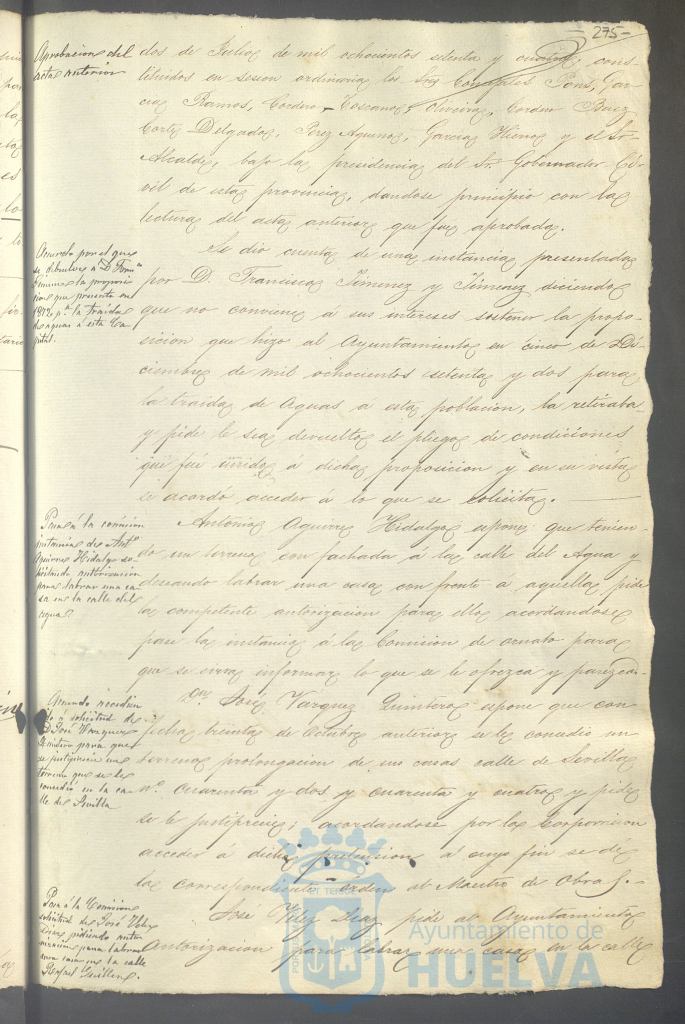 275-
Aprobacion del
acta anterior
dos de Julio de mil ochocientos setenta y cuatro, cons-
tituidos en sesion ordinaria los Sres Concejales Pons, Gar-
cia Ramos, Cordero, Toscano, Oliveira, Cordero Baez
Cortes Delgado, Perez Aquino, Garcia Hierro y el Sr.
Alcalde, bajo la presidencia del Sr. Gobernador Ci-
vil de esta provincia, dandose principio con la
lectura del acta anterior que fue aprobada.
Acuerdo por el que
se debuelve a D. Fran.co
Jimenez la proposi-
cion que presentó en
1872 p.a la traida
de aguas a esta Ca-
pital.
Se dio cuenta de una instancia presentada
por D. Francisco Jimenez y Jimenez diciendo
que no conviene á sus intereses sostener la propo-
sicion que hizo al Ayuntamiento en cinco de Di-
ciembre de mil ochocientos setenta y dos para
la traida de Aguas a esta poblacion, la retiraba
y pide le sea devuelto el pliego de condiciones
que fué unido á dicha proposicion y en su vista
se acordó acceder á lo que se solicita.
Pase á la comision
instancia de Ant.o
Aguirre Hidalgo so-
licitando autorizacion
para labrar una ca-
sa en la calle del
agua.
Antonio Aguirre Hidalgo espone: que tenien-
do un terreno con fachada á la calle del Agua y
deseando labrar una casa con frente a aquella, pide
la competente autorizacion para ello acordandose
pase la instancia á la Comision de ornato para
que se sirva informar lo que se le ofrezca y parezca.
Acuerdo accedien-
do á solicitud de
D. José Vazquez
Quintero para que
se justiprecie un
terreno que se le
concedió en la ca-
lle de Sevilla
Don José Vazquez Quintero espone que con
fecha treinta de Octubre anterior se le concedio un
terreno prolongacion de sus casas calle de Sevilla
n.o cuarenta y dos y cuarenta y cuatro y pide
se le justiprecie; acordandose por la Corporacion
acceder á dicha pretencion al cuyo fin se de
la correspondiente orden al Maestro de Obras.
Pase á la Comision
solicitud de José Velez
Diaz pidiendo autori-
zacion para labrar
una casa en la calle
Rafael Guillen.
José Velez Diaz pide al Ayuntamiento
autorizacion para labrar una casa en la calle
Ayuntamiento de
HUELVA